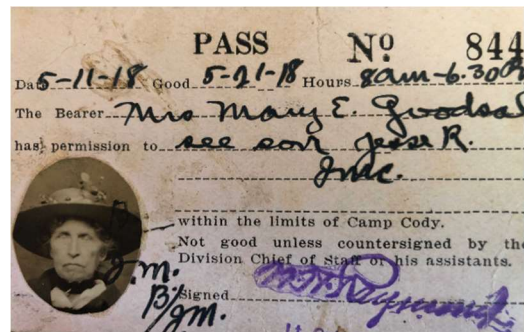 PASS Nº 844
Date 5-11-18 Good 5-21-18 Hours 8am-6.30
The Bearer Mrs Mary E.
has permission to see son Jesse R.
within the limits of Camp Cody.
Not good unless countersigned by the
Division Chief of Staff or his assistants.
J.M.
Signed
J.M.